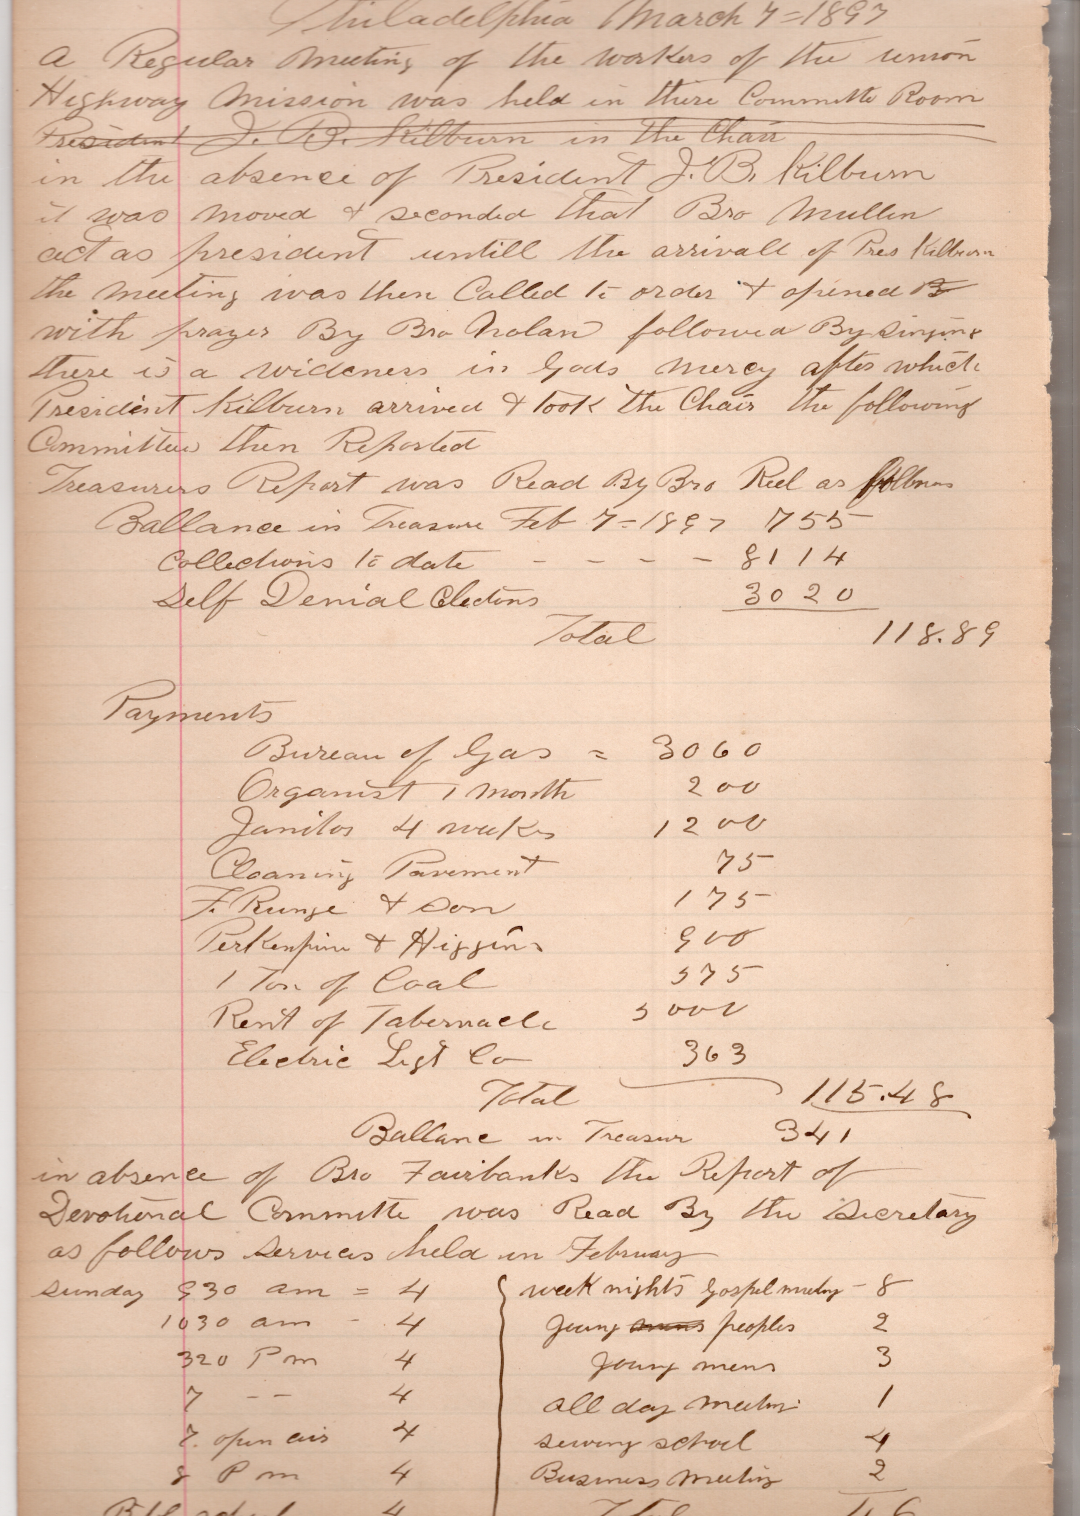 Philadelphia March 7=1897
a Regular Meeting of the workers of the union
Highway Mission was held in there Committe Room
President J. B. Kilburn in the Chair
in the absence of President J. B. Kilburn
it was moved & seconded that Bro Mullin
act as president untill the arrivall of Pres Kilburn
the meeting was then Called to order & opened B
with prayer By Bro Nolan followed By singing
there is a wideness in Gods mercy after which
President Kilburn arrived & took the Chair the following
Committee then Reported
Treasurers Report was Read By Bro Reel as follows
Ballance in Treasure Feb 7=1897 755
Collections to date - - - - 8114
Self Denial Clections 3020
Total 118.89
Payments
Bureau of Gas = 3060
Organist 1 month 200
Janitor 4 weeks 1200
Cleaning Pavement 75
F. Runge & Son 175
Perkenpine & Higgins 900
1 Ton of Coal 575
Rent of Tabernacle 5000
Electric Ligt Co 363
Total 115.48
Ballanc in Treasur 341
in absence of Bro Fairbanks the Report of
Devotional Committe was Read By the Secretary
as follows services held in February
Sunday 930 am = 4 week nights Gospel meeting - 8
1030 am - 4 young mens peoples 2
320 Pm 4 young mens 3
7 -- 4 all day meeting 1
7. open air 4 sewing school 4
8 Pm 4 Business Meeting 2
4 Total 46